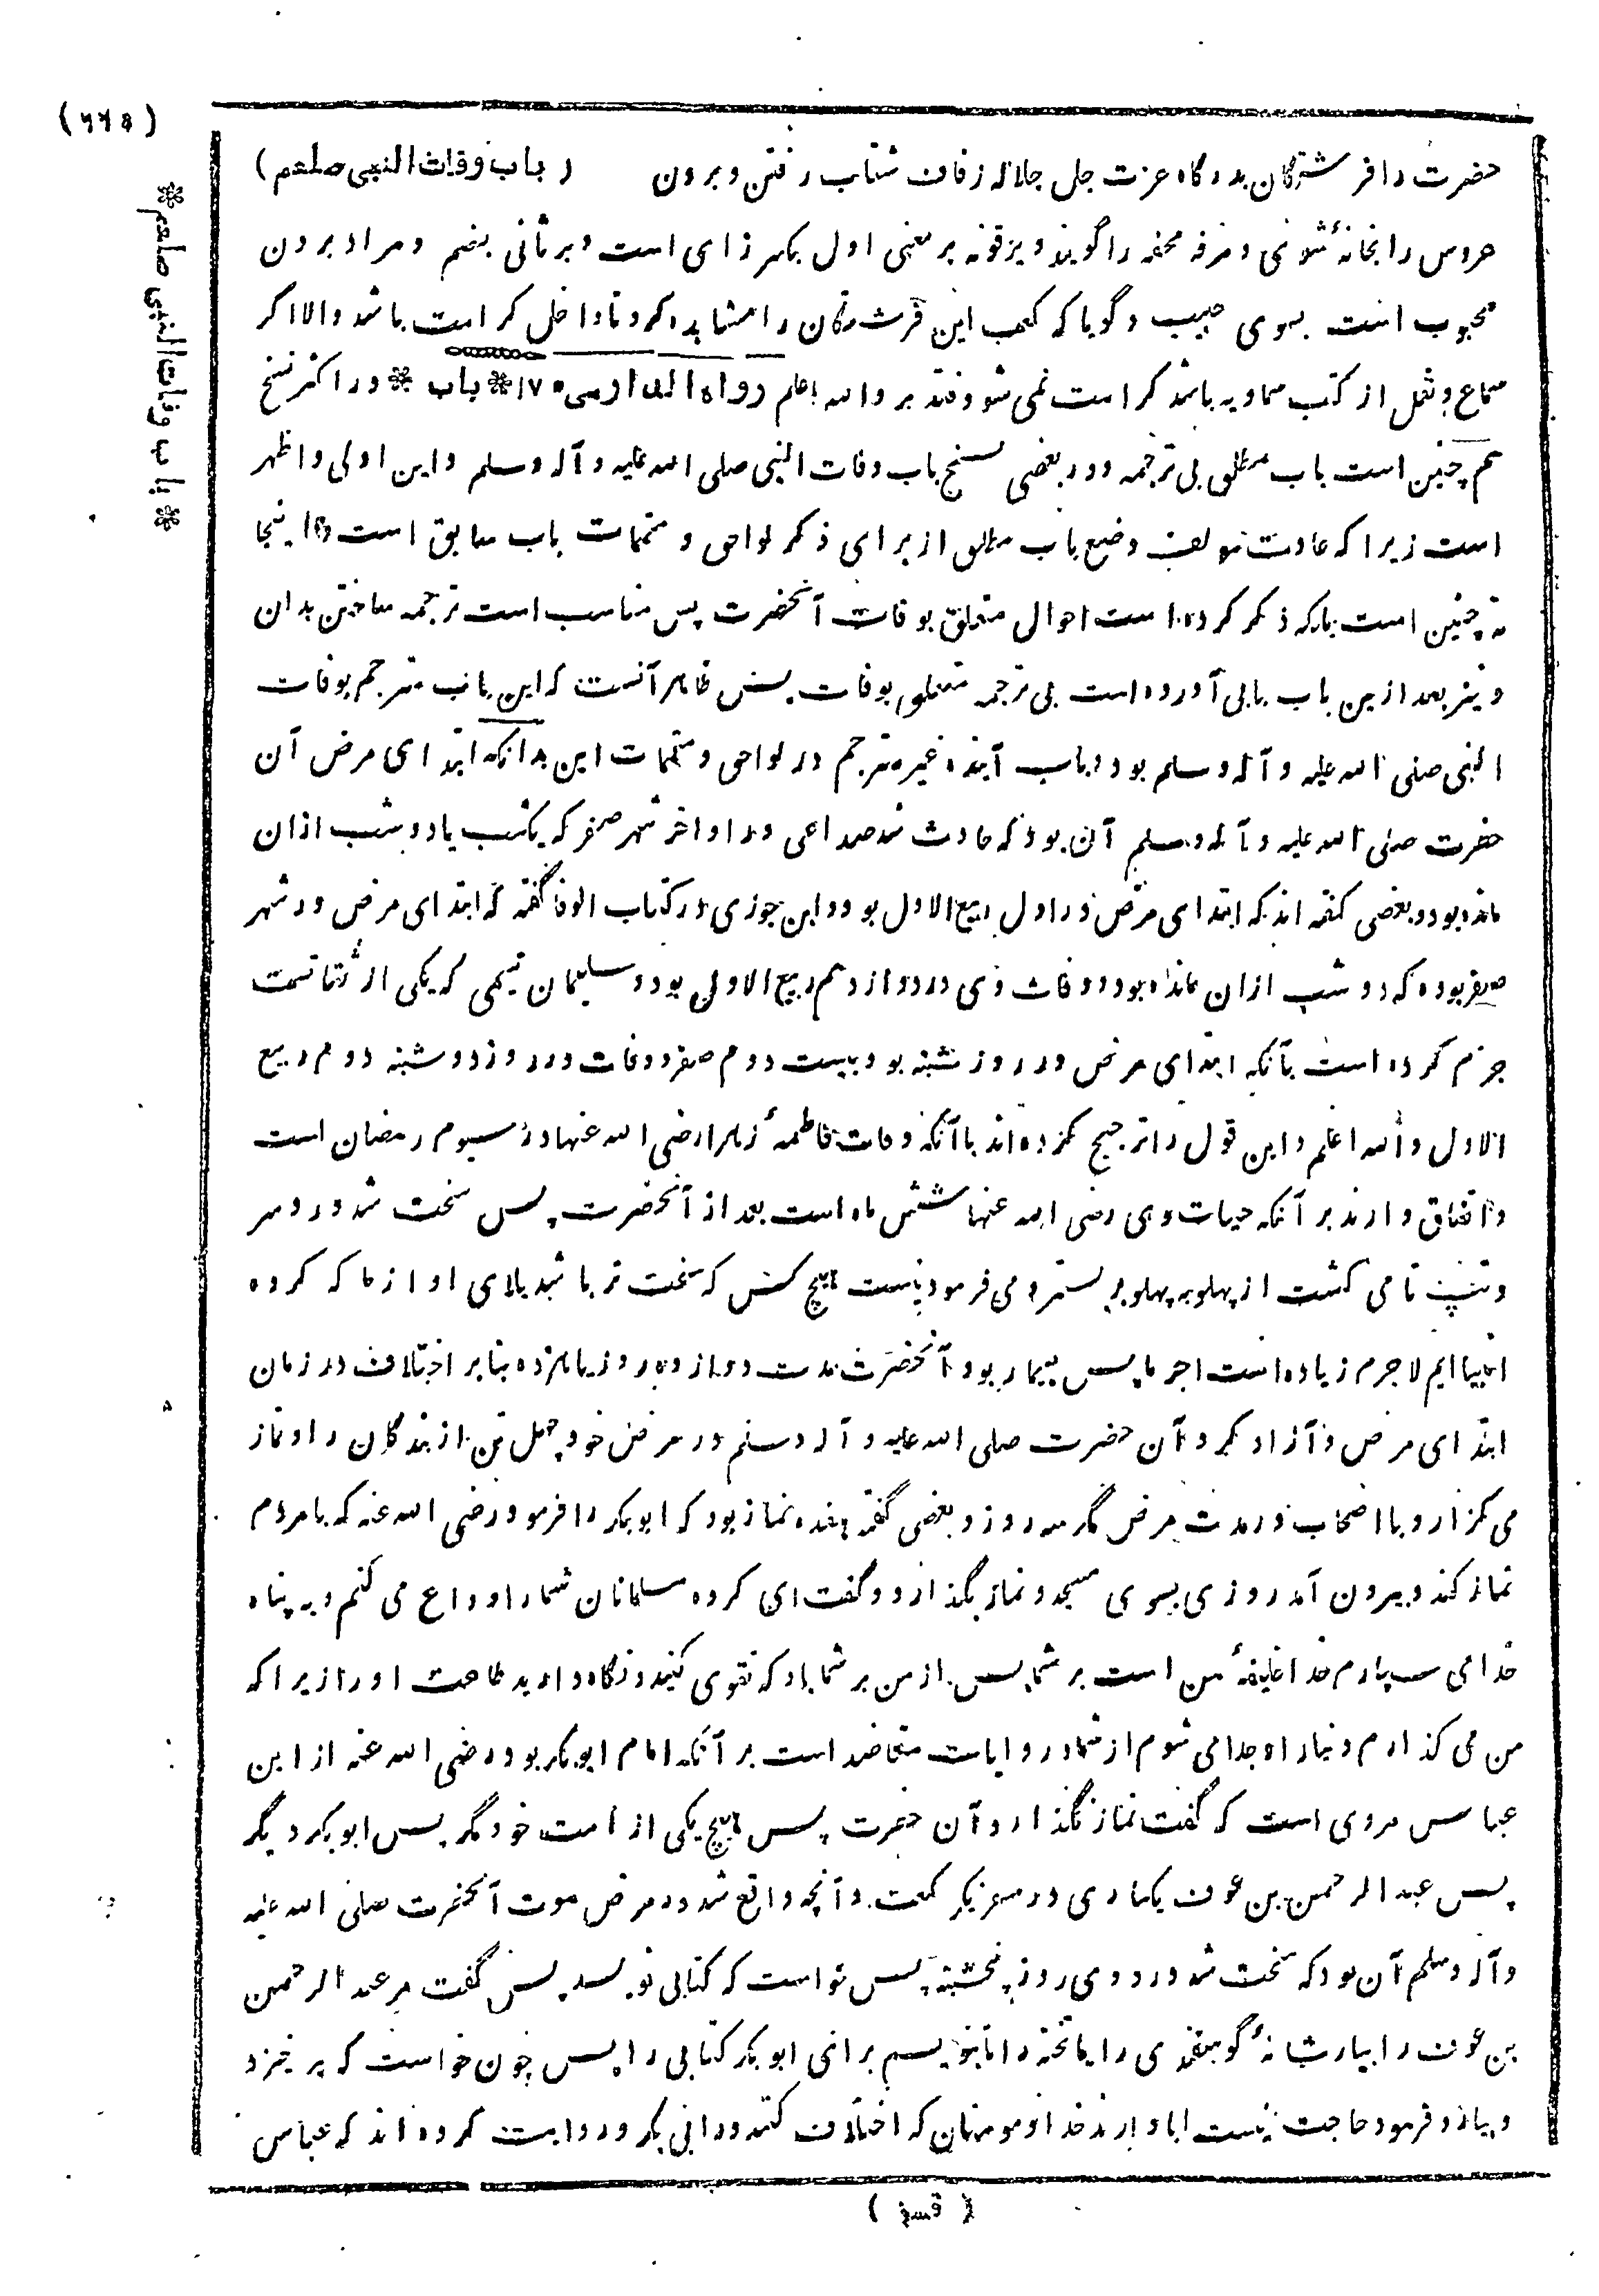 (۶۶۵)
حضرت را فرشتگان بدرگاه عزت جل جلاله زفاف شتاب رفتن و بردن (باب وفات النبی صلعم)
عروس را بخانهٔ شوی و مزفه محفه را گویند و یزفونه بر معنی اول بکسر زای است و بر ثانی بضم و مراد بردن
محبوب است بسوی حبیب و گویا که کعب این فرشتگان را مشاهده کرد تا داخل کرامت باشد والا اگر
سماع و نقل از کتب سماویه باشد کرامت نمی شود فتدبر والله اعلم رواه الدارمی ۱۷ * باب * در اکثر نسخ
هم چنین است باب مطلق بی ترجمه و در بعضی نسخ باب وفات النبی صلی الله علیه و آله وسلم و این اولی و اظهر
است زیرا که عادت مولف وضع باب مطلق از برای ذکر لواحق و متممات باب سابق است و اینجا
نه چنین است بلکه ذکر کرده است احوال متعلق بوفات آنحضرت پس مناسب است ترجمه ساختن بدان
و نیز بعد ازین باب بابی آورده است بی ترجمه متعلق بوفات پس ظاهر آنست که این باب مترجم بوفات
النبی صلی الله علیه و آله وسلم بود و باب آینده غیر مترجم در لواحق و متممات این بدانکه ابتدای مرض آن
حضرت صلی الله علیه و آله وسلم آن بود که حادث شد صداعی در اواخر شهر صفر که یکشب یا دو شب ازان
مانده بود و بعضی گفته اند که ابتدای مرض در اول ربیع الاول بود و ابن جوزی در کتاب الوفا گفته که ابتدای مرض در شهر
صفر بوده که دو شب ازان مانده بود و وفات وی در دوازدهم ربیع الاول بود و سلیمان تیمی که یکی از ثقاتست
جزم کرده است بآنکه ابتدای مرض در روز شنبه بود بیست دوم صفر و وفات در روز دوشنبه دوم ربیع
الاول والله اعلم و این قول را ترجیح کرده اند باآنکه وفات فاطمهٔ زهرا رضی الله عنها در سیوم رمضان است
و اتفاق دارند بر آنکه حیات وی رضی الله عنها شش ماه است بعد از آنحضرت پس سخت شد درد سر
و تپ تا می گشت از پهلو به پهلو بر بستر و می فرمود نیست هیچ کس که سخت تر باشد بلای او از ما که گروه
انبیا ایم لا جرم زیاده است اجر ما پس بیمار بود آنحضرت مدت دوازده روز یا هژده بنا بر اختلاف در زمان
ابتدای مرض و آزاد کرد آن حضرت صلی الله علیه و آله وسلم در مرض خود چهل تن از بندگان را و نماز
می گزارد با اصحاب در مدت مرض مگر سه روز و بعضی گفته هفده نماز بود که ابوبکر را فرمود رضی الله عنه که با مردم
نماز کند و بیرون آمد روزی بسوی مسجد و نماز بگذارد و گفت ای گروه مسلمانان شما را وداع می کنم و به پناه
خدا می سپارم خدا خلیفهٔ من است بر شما پس از من بر شما باد که تقوی کنید و نگاه دارید طاعت او را زیرا که
من می گذارم دنیا را و جدا می شوم از شما و روایات متعاضد است بر آنکه امام ابوبکر بود رضی الله عنه از ابن
عباس مروی است که گفت نماز نگذارد آن حضرت پس هیچ یکی از امت خود مگر پس ابوبکر و دیگر
پس عبد الرحمن بن عوف یکبار دی در سفر یکرکعت و آنچه واقع شد در مرض موت آنحضرت صلی الله علیه
و آله وسلم آن بود که سخت شد درد وی روز پنجشنبه پس خواست که کتابی نویسد پس گفت مر عبد الرحمن
بن عوف را بیار شانهٔ گوسفندی را یا تخته را تا بنویسم برای ابوبکر کتابی را پس چون خواست که برخیزد
و بیارد فرمود حاجت نیست ابا دارند خدا و مومنان که اختلاف کنند در ابی بکر و روایت کرده اند که عباس
* باب وفات النبی صلعم *